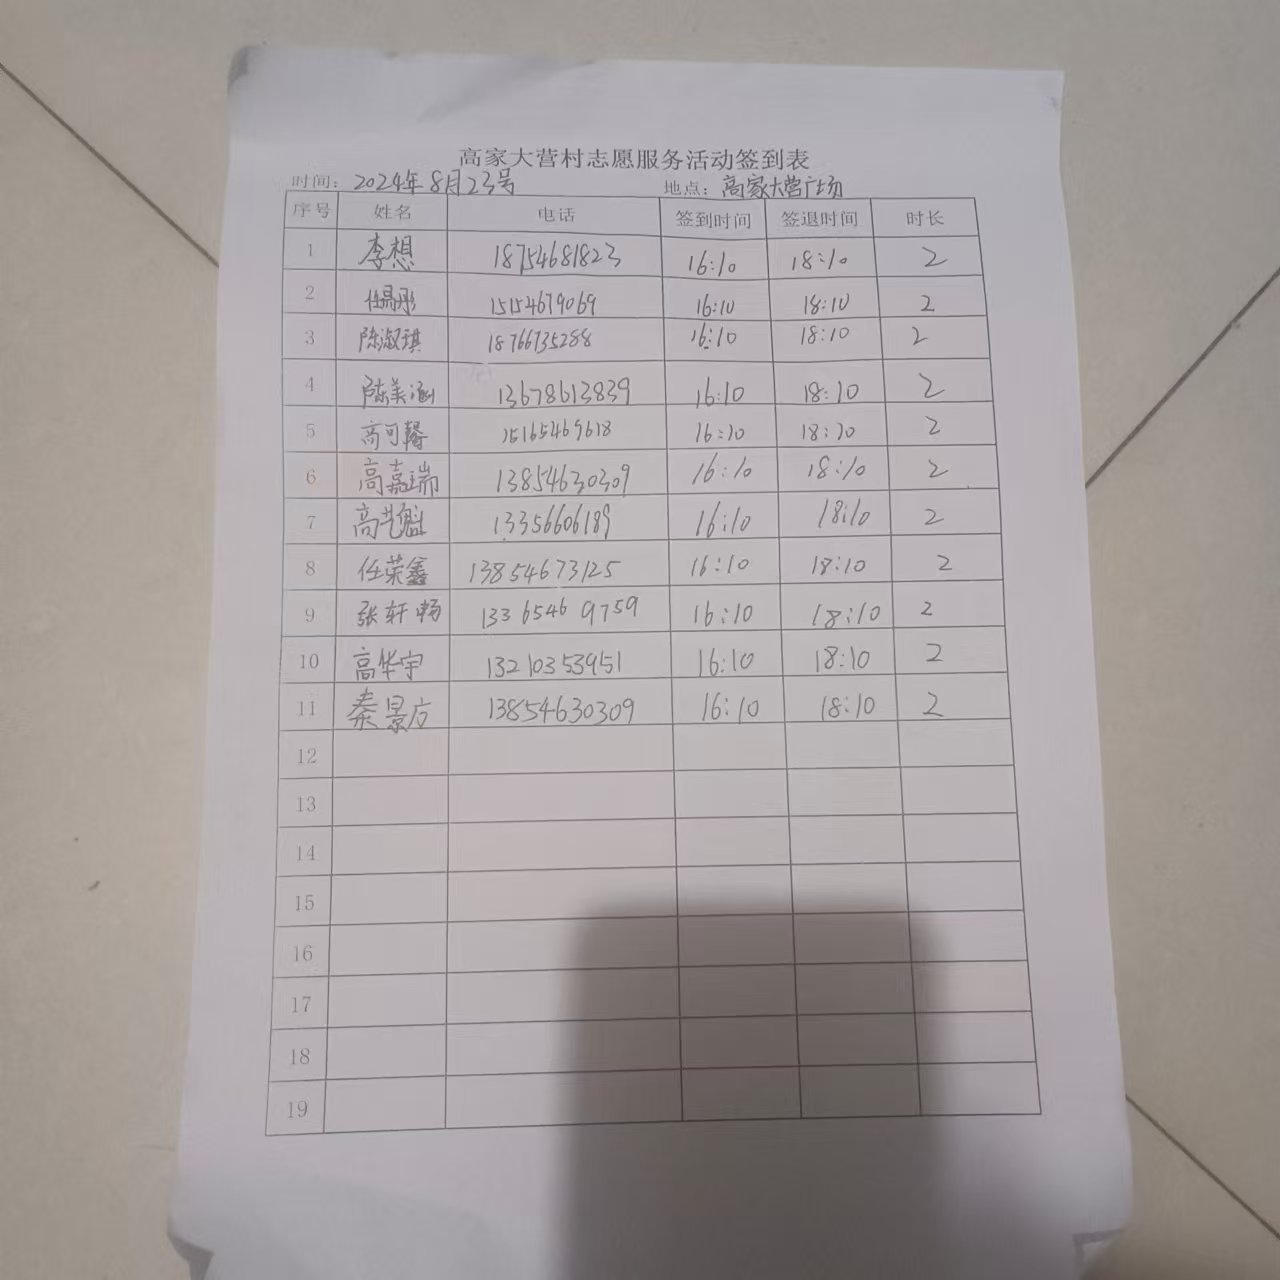 高家大营村志愿服务活动签到表
时间：2024年8月23号 地点：高家大营广场
序号 姓名 电话 签到时间 签退时间 时长
1 李想 18754681823 16:10 18:10 2
2 任昂彤 15154679069 16:10 18:10 2
3 陈淑琪 18766735288 16:10 18:10 2
4 陈美涵 13678613839 16:10 18:10 2
5 高可馨 15165469618 16:10 18:10 2
6 高嘉瑞 13854630309 16:10 18:10 2
7 高艺魁 13356606189 16:10 18:10 2
8 任荣鑫 13854673125 16:10 18:10 2
9 张轩畅 13365469759 16:10 18:10 2
10 高华宇 13210353951 16:10 18:10 2
11 秦景 13854630309 16:10 18:10 2
12
13
14
15
16
17
18
19